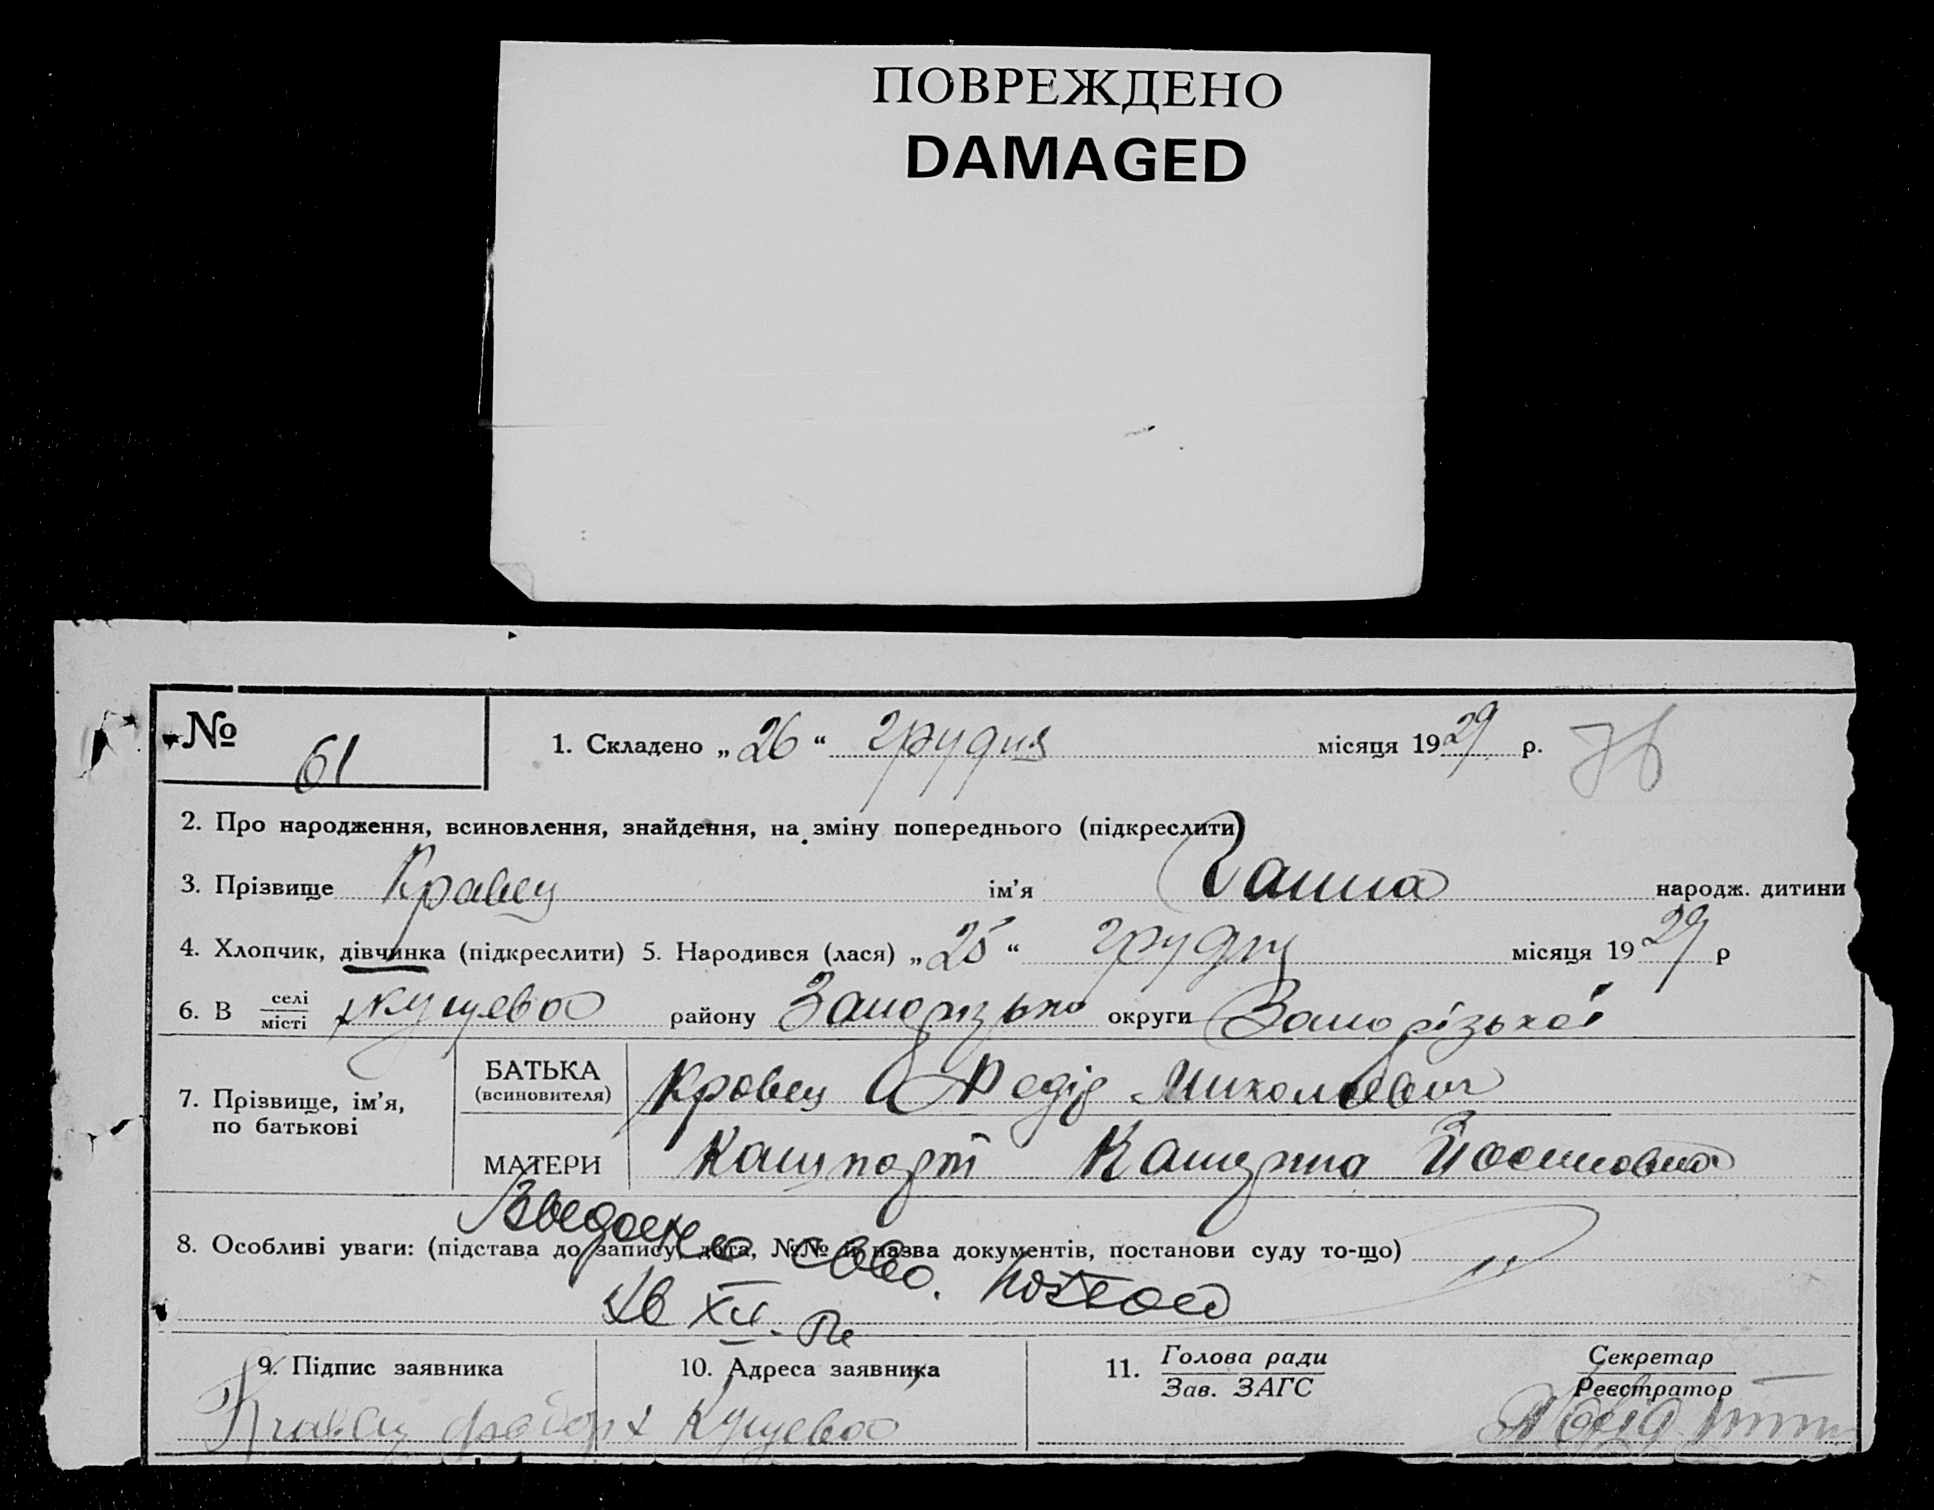 ПОВРЕЖДЕНО
DAMAGED
№ 61
1. Складено „26“ грудня місяця 1929 р.
2. Про народження, всиновлення, знайдення, на зміну попереднього (підкреслити)
3. Прізвище Кравец ім'я Ганна народж. дитини
4. Хлопчик, дівчинка (підкреслити) 5. Народився (лася) „25“ грудня місяця 1929 р
6. В селі місті Кущевое району Запорізько округи Запорізької
7. Прізвище, ім'я, по батькові
БАТЬКА (всиновителя) Кравец Федір Миколаевич
МАТЕРИ Кашпорт Катерина Йосиповна
8. Особливі уваги: (підстава до запису, дата, №№ й назва документів, постанови суду то-що)
9. Підпис заявника
10. Адреса заявника
11. Голова ради
Зав. ЗАГС
Секретар
Реєстратор
Кравец Кущевое